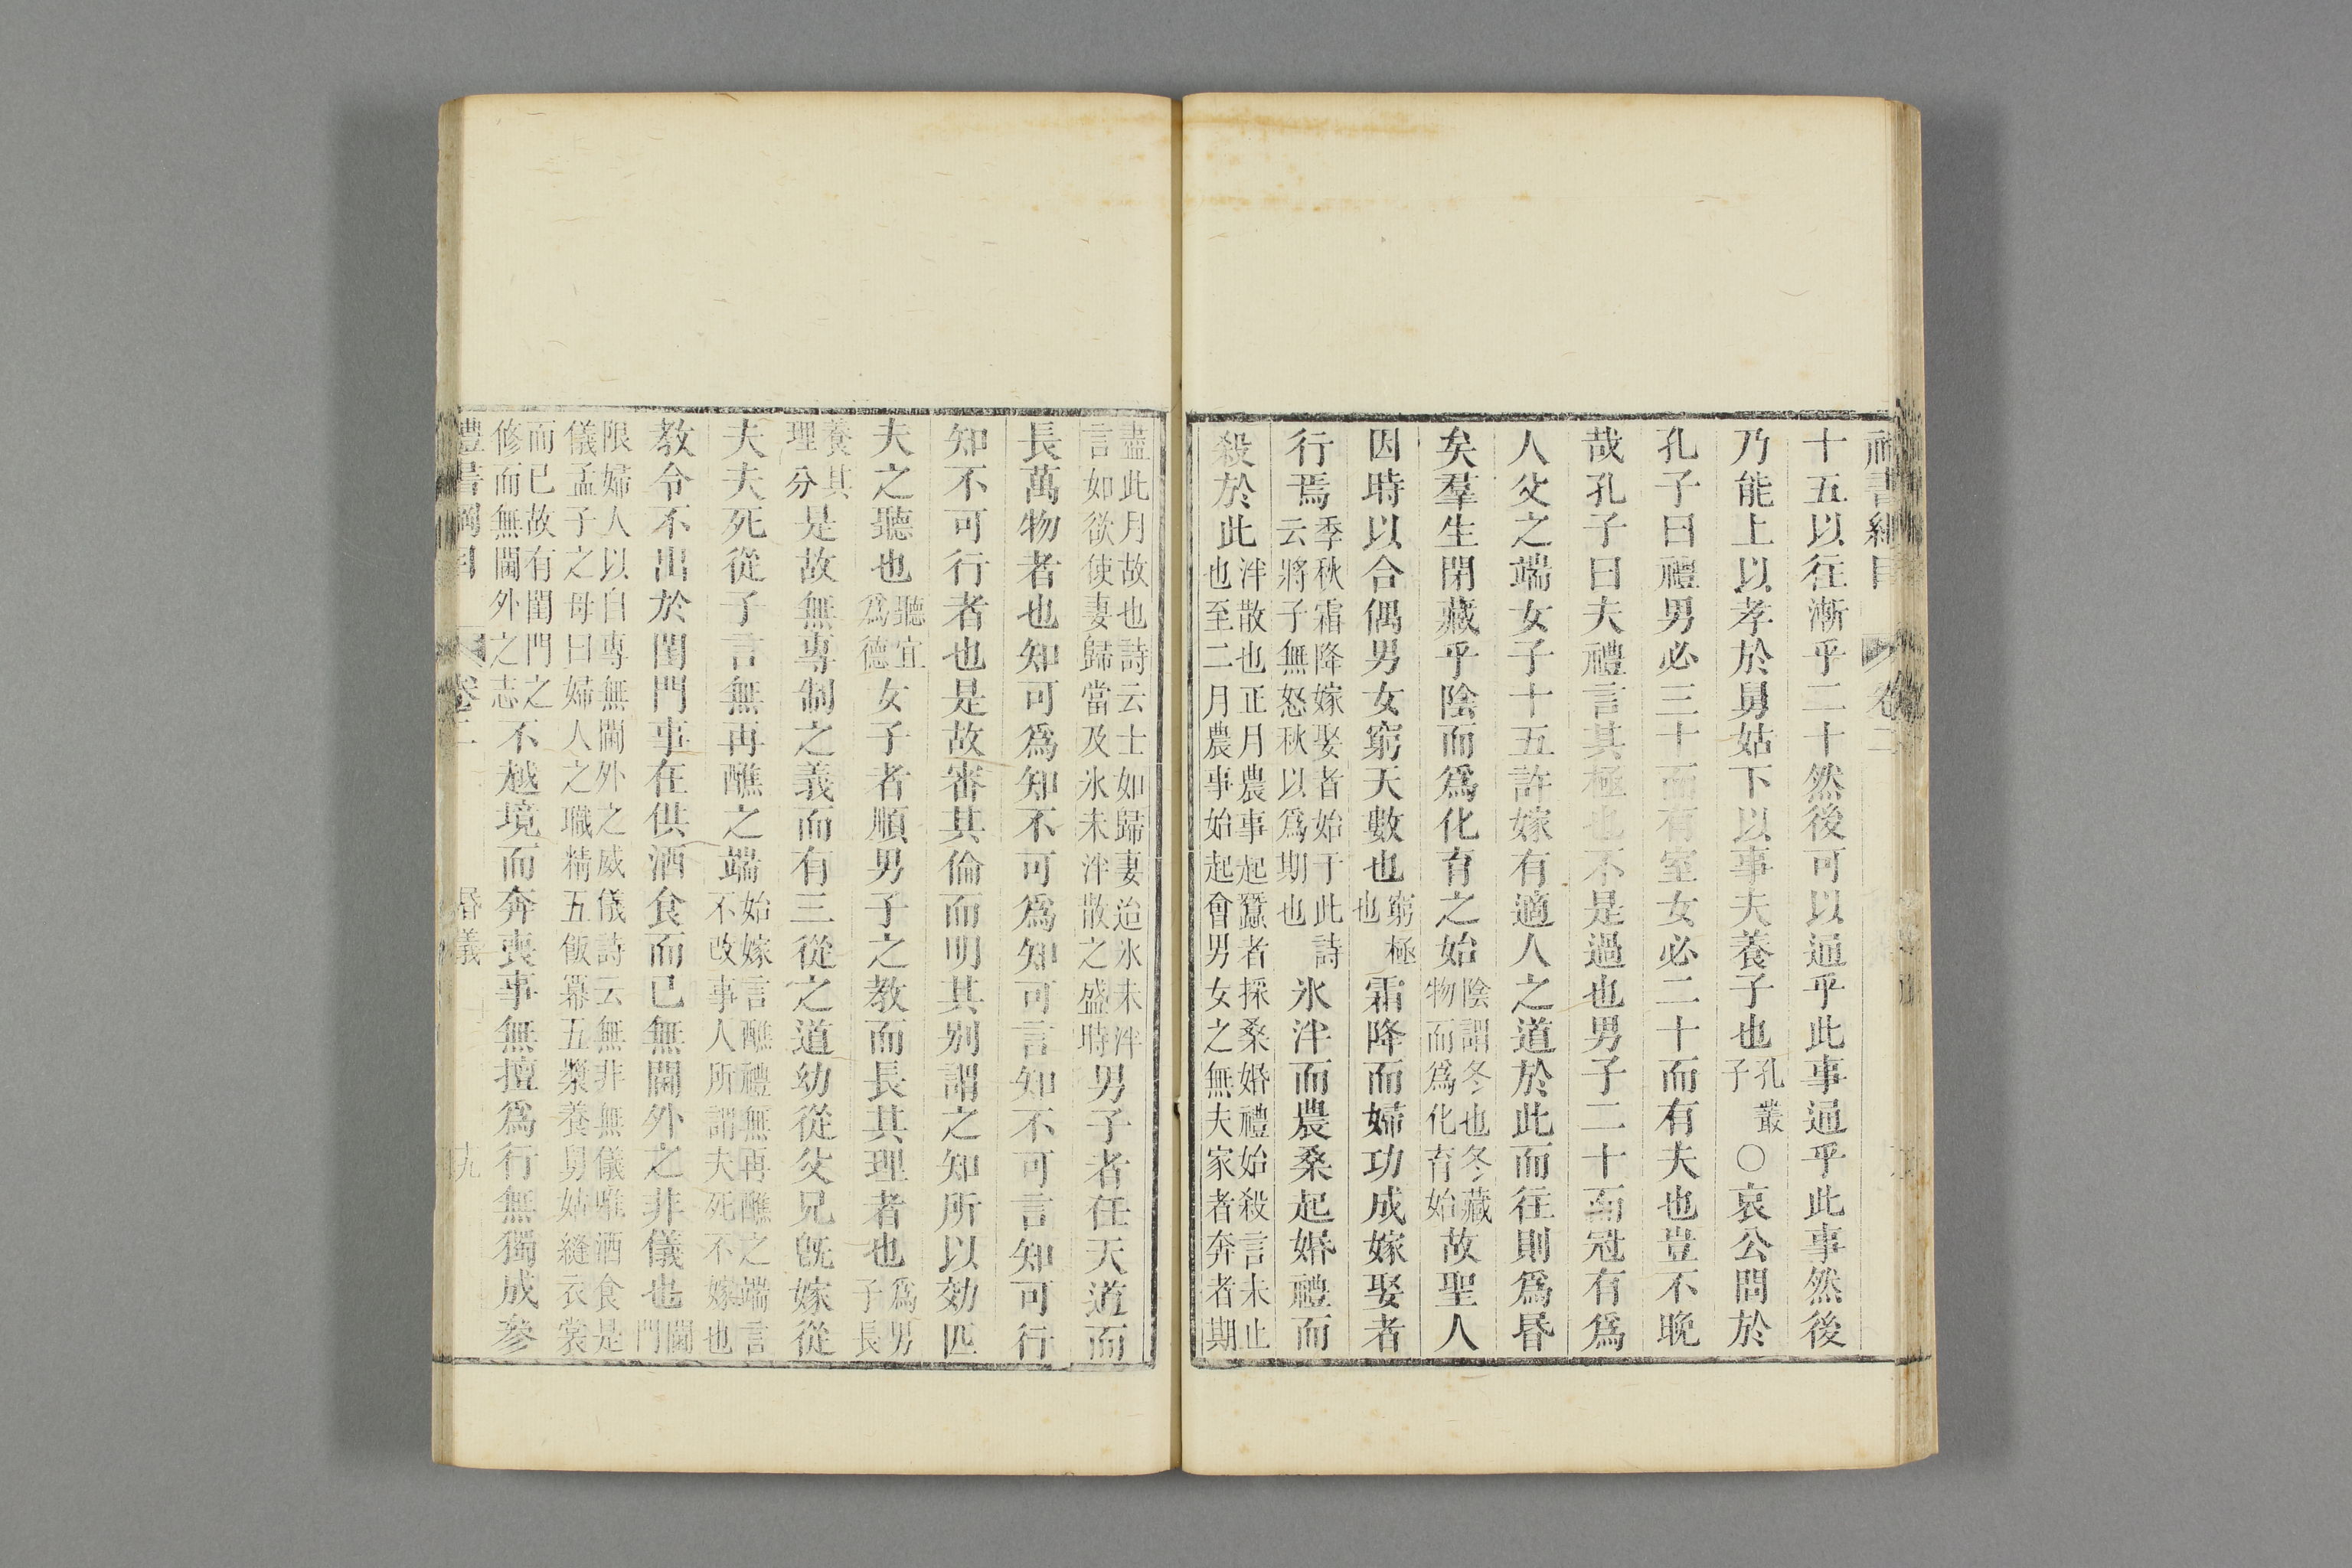 禮書綱目 卷二
十五以往漸乎二十然後可以通乎此事通乎此事然後
乃能上以孝於舅姑下以事夫養子也孔叢子○哀公問於
孔子曰禮男必三十而有室女必二十而有夫也豈不晚
哉孔子曰夫禮言其極也不是過也男子二十而冠有爲
人父之端女子十五許嫁有適人之道於此而往則爲昏
矣羣生閉藏乎陰而爲化育之始陰謂冬也冬藏物而爲化育始故聖人
因時以合偶男女窮天數也窮極也霜降而婦功成嫁娶者
行焉季秋霜降嫁娶者始于此詩云將子無怒秋以爲期也氷泮而農桑起婚禮而
殺於此泮散也正月農事起蠶者採桑婚禮始殺言未止也至二月農事始起會男女之無夫家者奔者期
盡此月故也詩云士如歸妻迨氷未泮言如欲使妻歸當及氷未泮散之盛時男子者任天道而
長萬物者也知可爲知不可爲知可言知不可言知可行
知不可行者也是故審其倫而明其别謂之知所以効匹
夫之聽也聽宜爲德女子者順男子之教而長其理者也爲男子長
養其理分是故無專制之義而有三從之道幼從父兄旣嫁從
夫夫死從子言無再醮之端始嫁言醮禮無再醮之端言不改事人所謂夫死不嫁也
教令不出於閨門事在供酒食而已無閫外之非儀也閫門
限婦人以自專無閫外之威儀詩云無非無儀唯酒食是儀孟子之母曰婦人之職精五飯羃五漿養舅姑縫衣裳
而已故有閨門之修而無閫外之志不越境而奔喪事無擅爲行無獨成參
禮書綱目 卷二 昏儀 十九